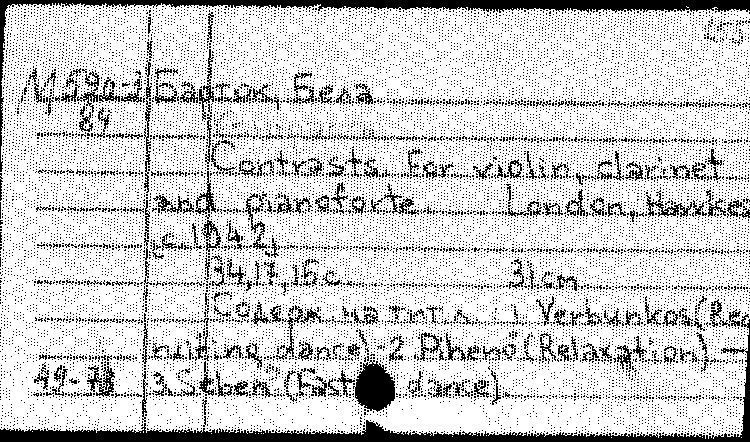 Барток, Бела
84
Contrasts. For violin, clarinet
and pianoforte. London, Hawkes
[c.1942]
34,17,15 с. 31 cm
Содерж на тит л : 1 Verbunkos (Rec
ruiting dance) - 2 Pihenö (Relaxation) —
3 Sebes (Fast dance).